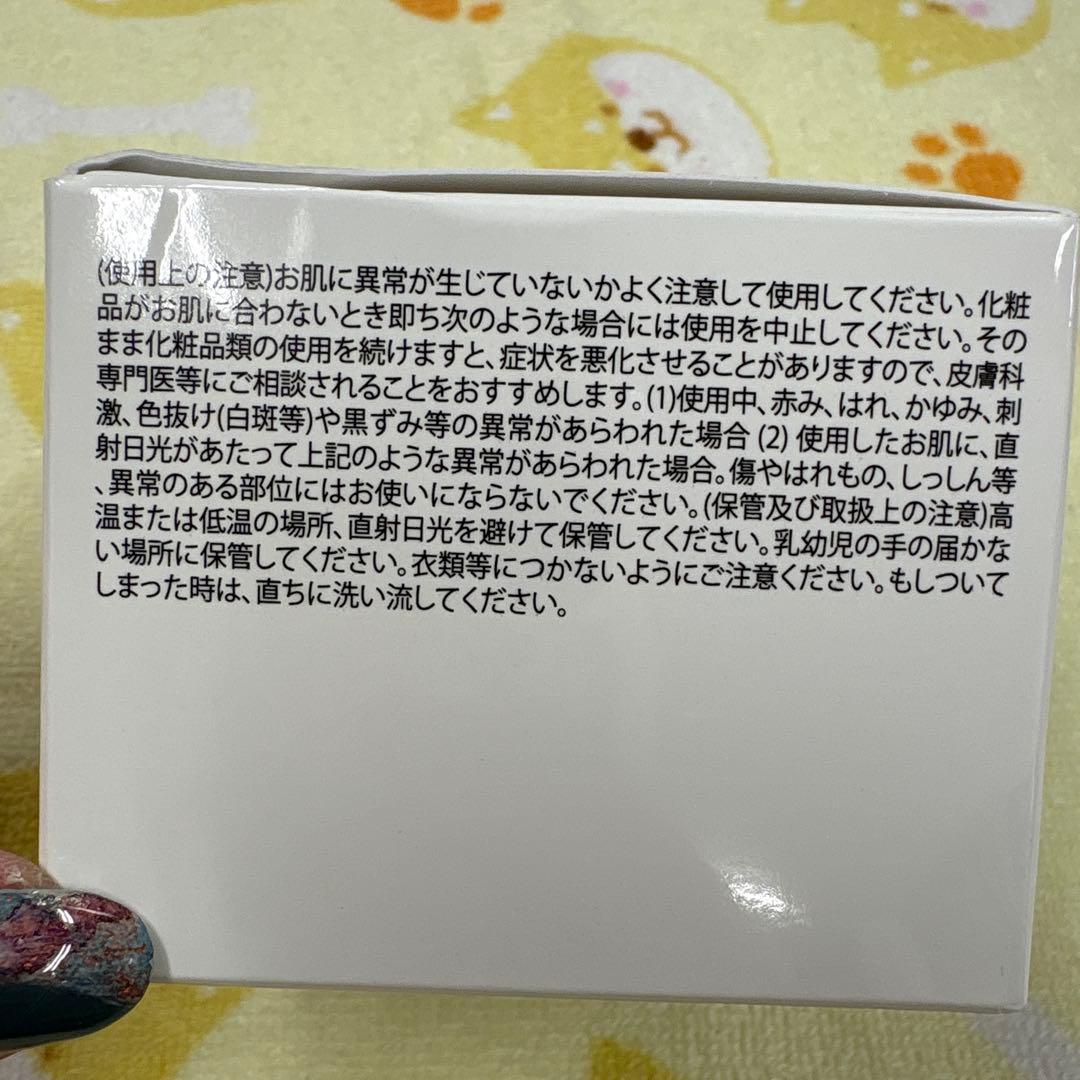 (使用上の注意)お肌に異常が生じていないかよく注意して使用してください。化粧
品がお肌に合わないとき即ち次のような場合には使用を中止してください。その
まま化粧品類の使用を続けますと、症状を悪化させることがありますので、皮膚科
専門医等にご相談されることをおすすめします。(1)使用中、赤み、はれ、かゆみ、刺
激、色抜け(白斑等)や黒ずみ等の異常があらわれた場合 (2) 使用したお肌に、直
射日光があたって上記のような異常があらわれた場合。傷やはれもの、しっしん等
、異常のある部位にはお使いにならないでください。(保管及び取扱上の注意)高
温または低温の場所、直射日光を避けて保管してください。乳幼児の手の届かな
い場所に保管してください。衣類等につかないようにご注意ください。もしついて
しまった時は、直ちに洗い流してください。